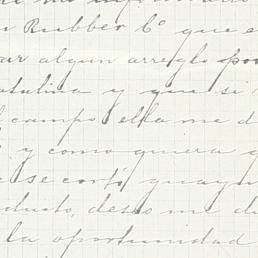 Rubber Co que e
ar algun arreglo por
tulina y que si
campo ella me d
y como quiera q
se cortó guayu
ducto, deseo me d
la oportunidad